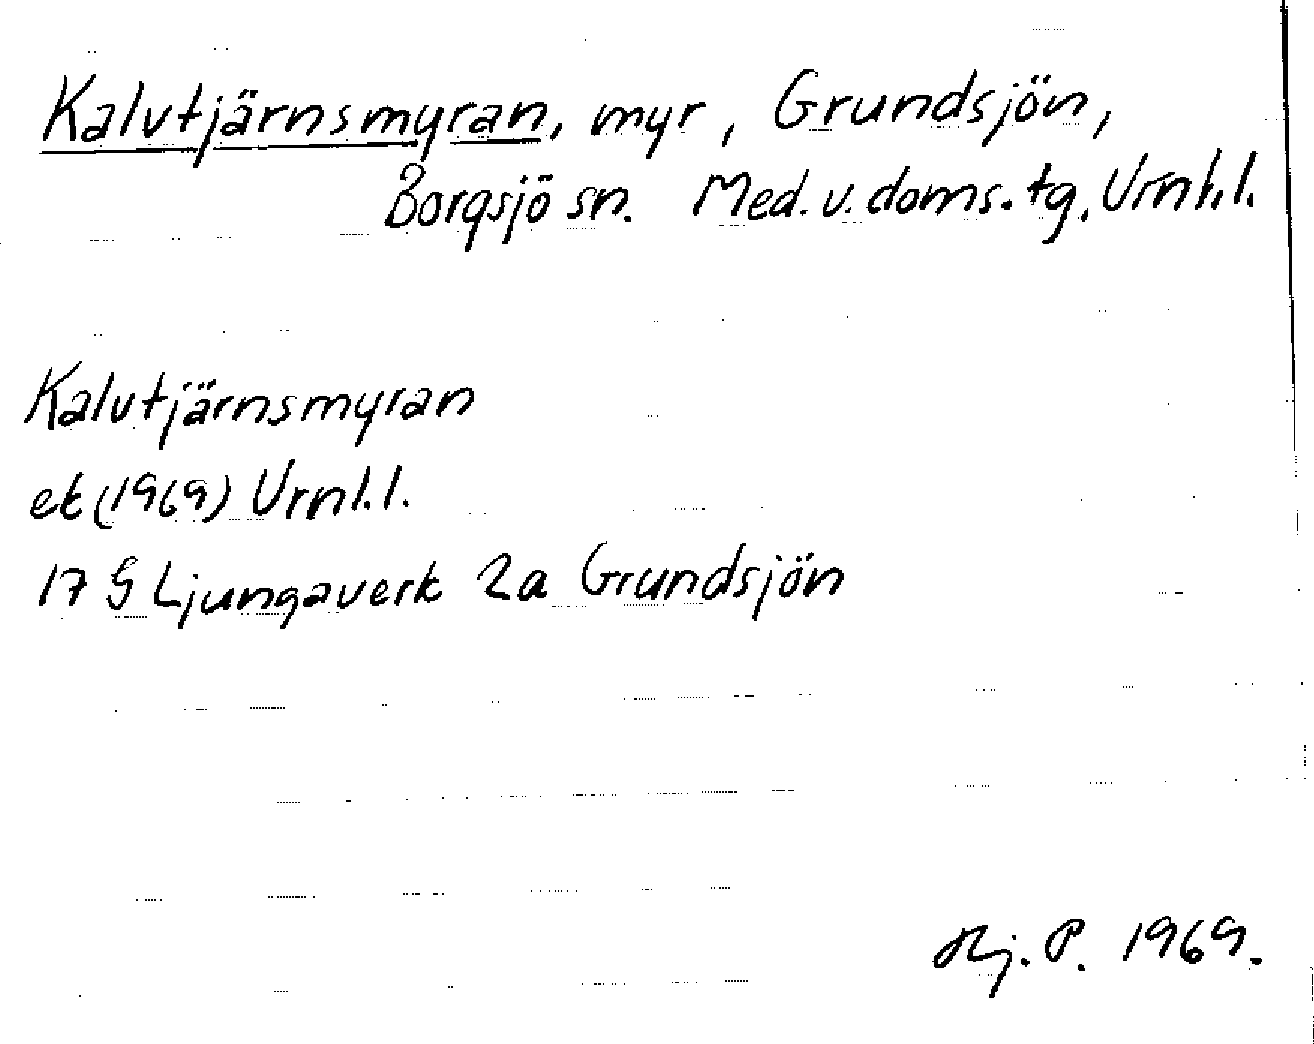 Kalvtjärnsmyran, myr, Grundsjön,
Borgsjö sn. Med. v. doms. tg, Vrnl.l.
Kalvtjärnsmyran
ek (1969) Vrnl.l.
17 G Ljungaverk 2a Grundsjön
Hj. P. 1969.